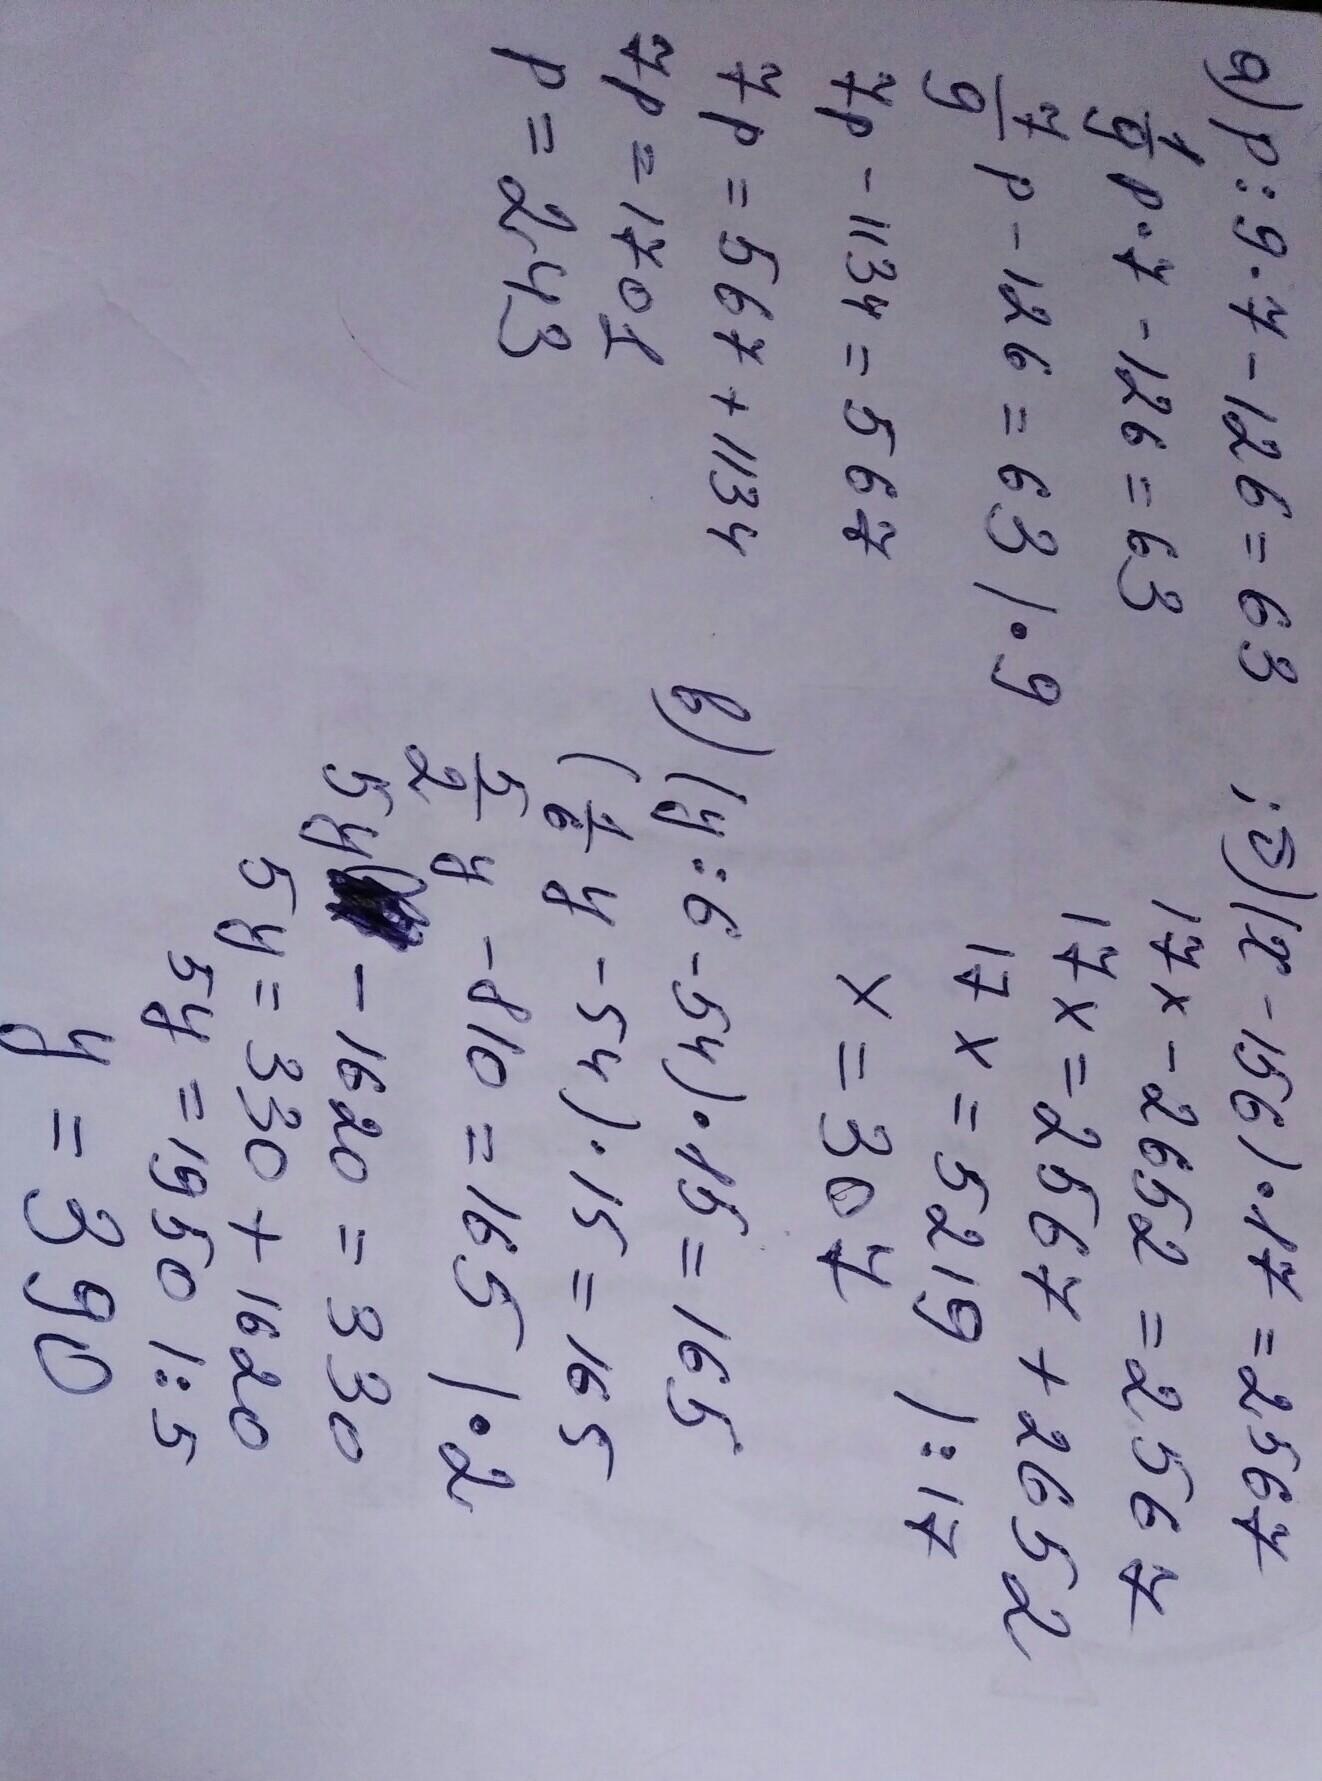 а) p:9·7-126=63
1/9 p·7-126=63
7/9 p-126=63 |·9
7p-1134=567
7p=567+1134
7p=1701
p=243
; б) (x-156)·17=2567
17x-2652=2567
17x=2567+2652
17x=5219 |:17
x=307
в) (y:6-54)·15=165
(1/6 y-54)·15=165
5/2 y-810=165 |·2
5y-1620=330
5y=330+1620
5y=1950 |:5
y=390